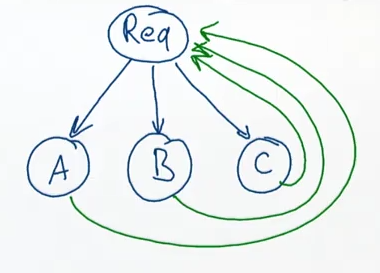 Req
A
B
C